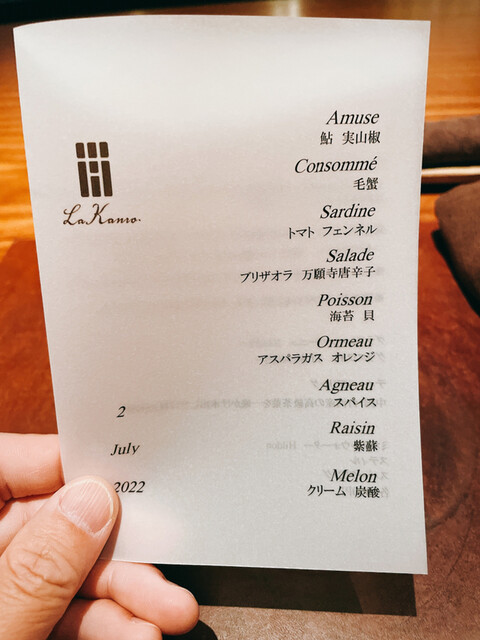 Amuse
鮎 実山椒
Consommé
毛蟹
La Kanro.
Sardine
トマト フェンネル
Salade
ブリザオラ 万願寺唐辛子
Poisson
海苔 貝
Ormeau
アスパラガス オレンジ
Agneau
スパイス
2
Raisin
紫蘇
July
Melon
クリーム 炭酸
2022